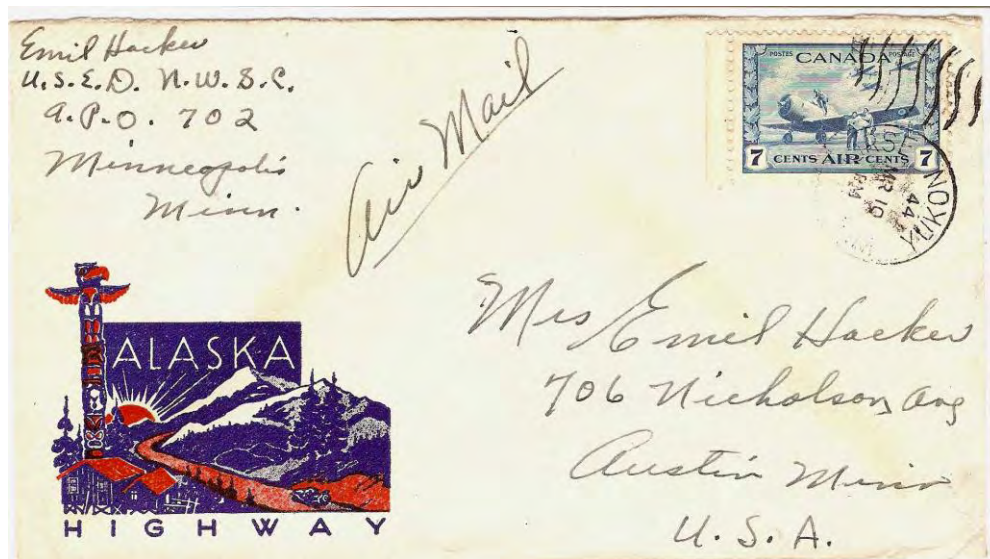 Emil Hacker
U.S.E.D. N.W.S.C.
A.P.O. 702
Minneapolis
Minn.
Air Mail
POSTES POSTAGE
CANADA
7 CENTS AIR CENTS 7
YUKON
MR 10
44
ALASKA
HIGHWAY
Mrs Emil Hacker
706 Nicholson Ave
Austin Minn
U.S.A.